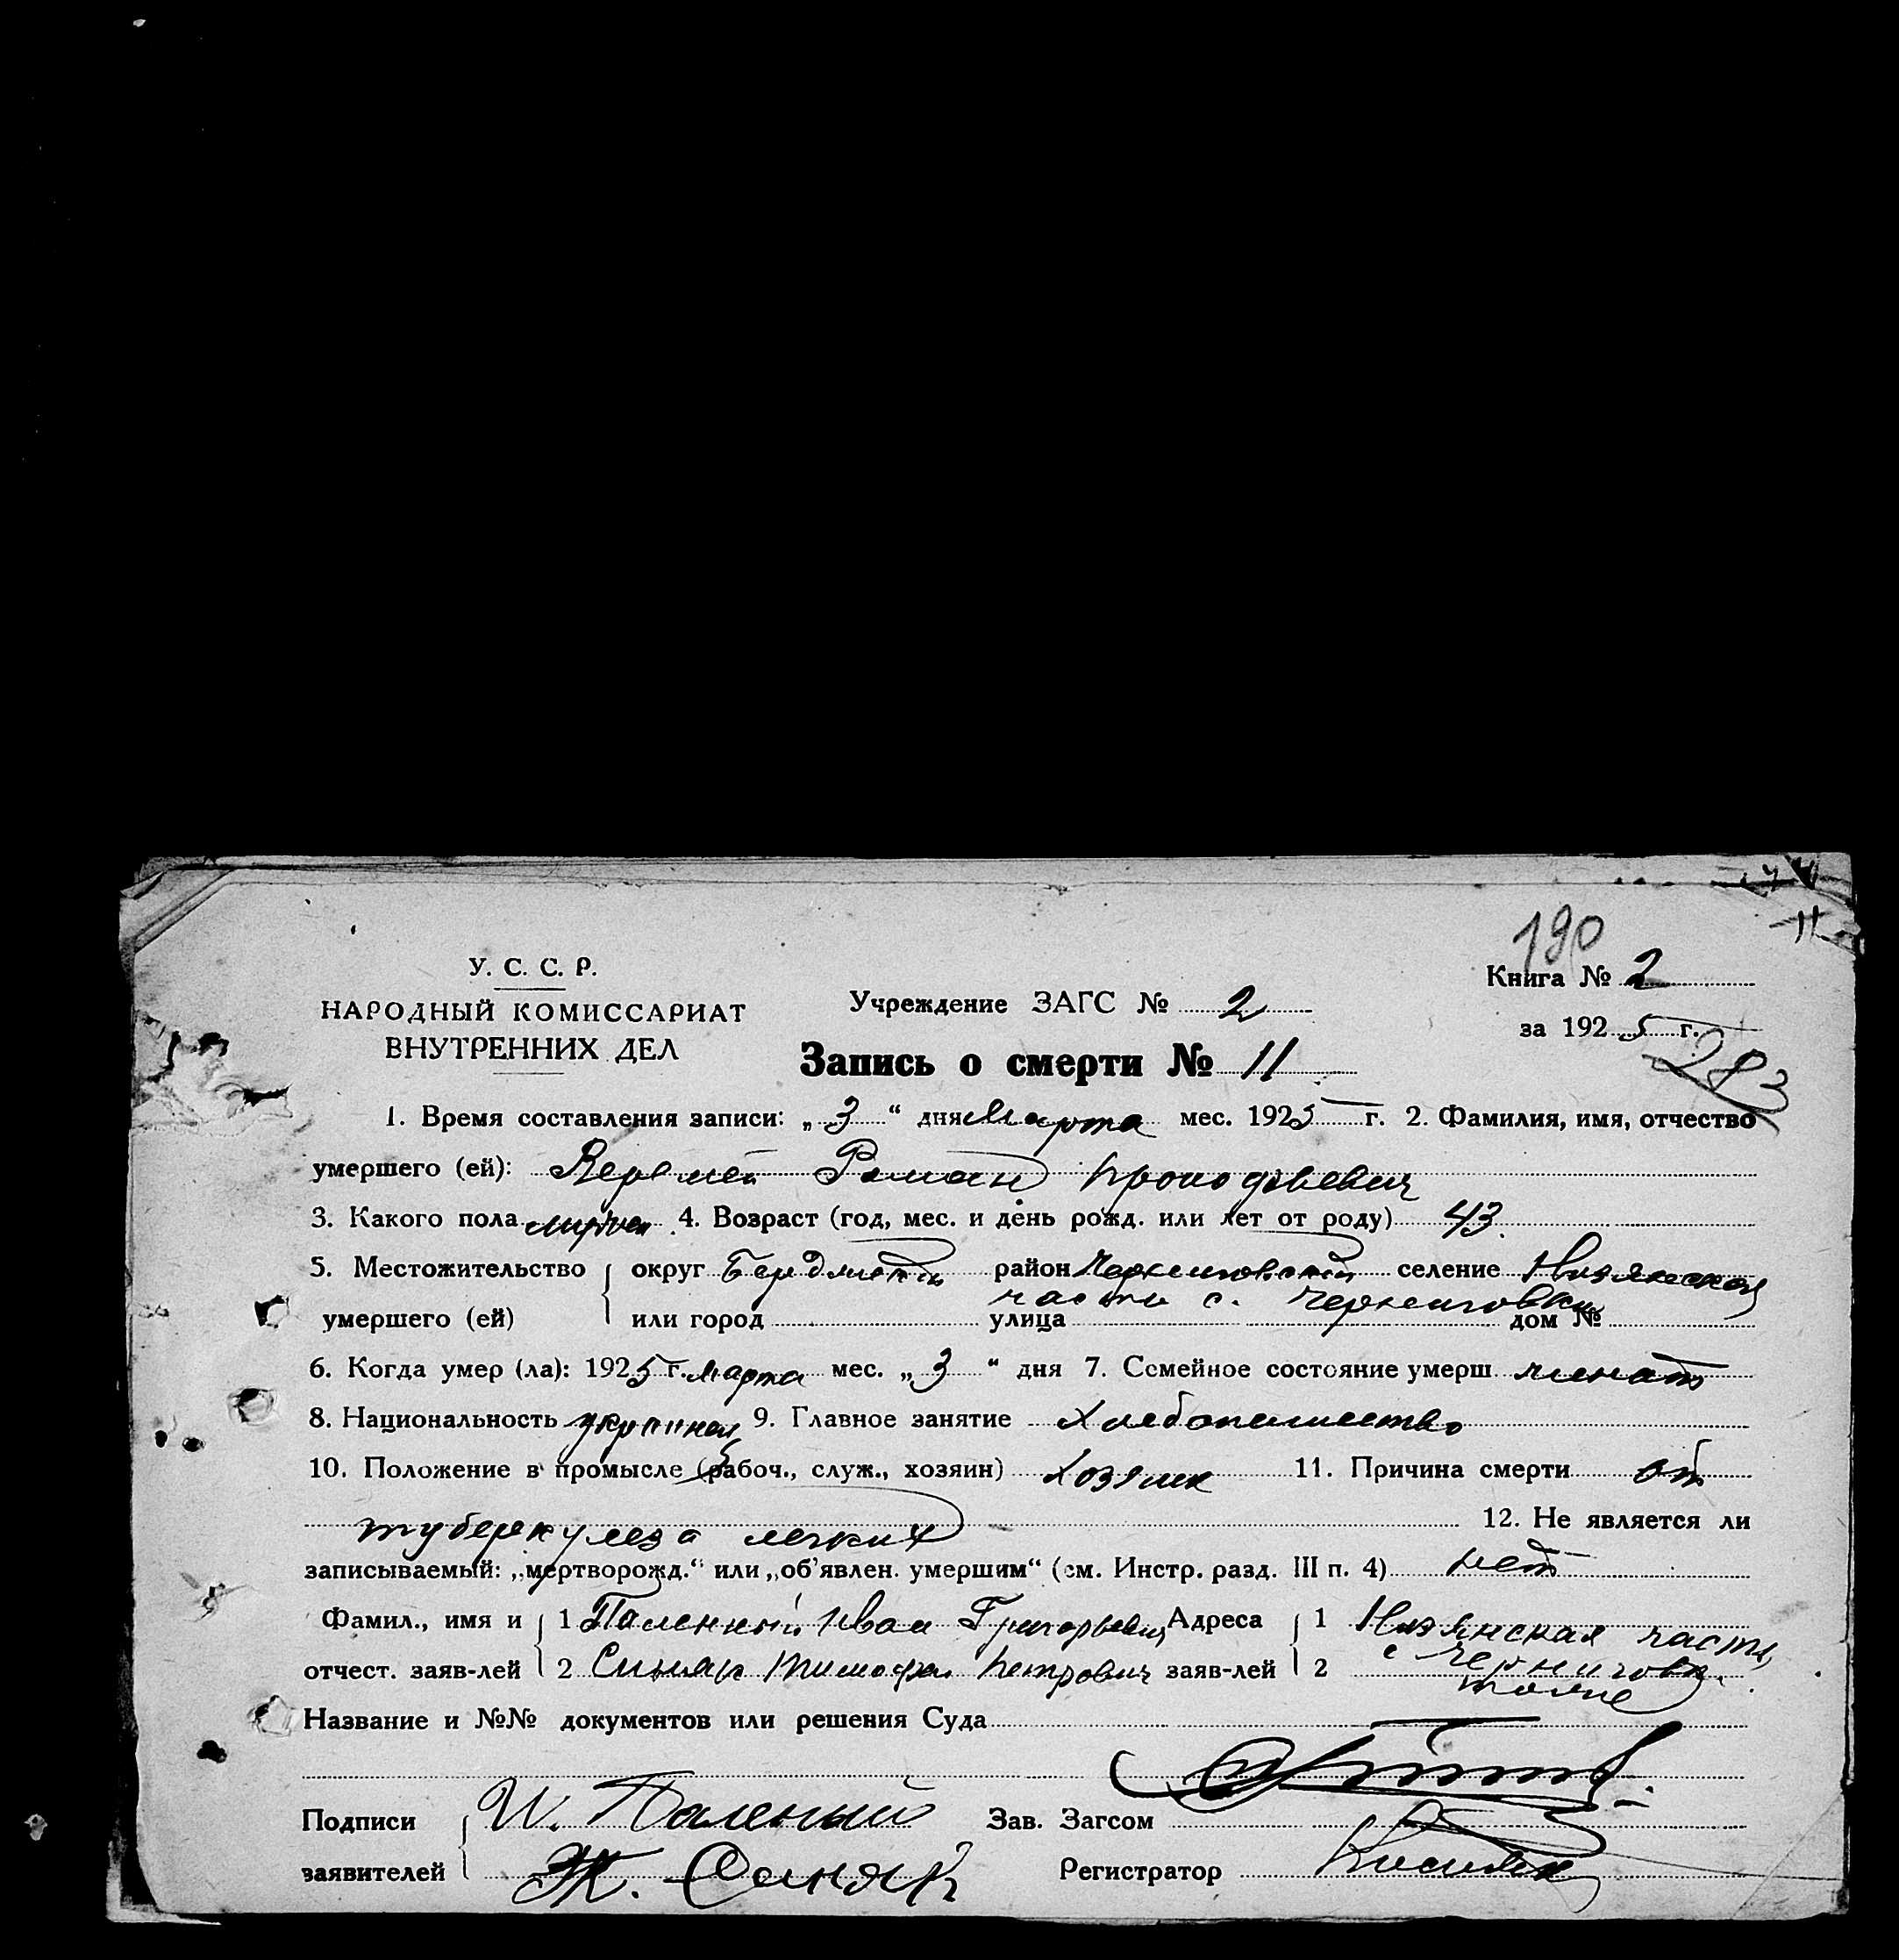 190
У. С. С. Р.
Книга № 2
НАРОДНЫЙ КОМИССАРИАТ
ВНУТРЕННИХ ДЕЛ
Учреждение ЗАГС № 2
за 1925 г.
283
Запись о смерти № 11
1. Время составления записи: „3“ дня Марта мес. 1925 г. 2. Фамилия, имя, отчество
умершего (ей): Роман
3. Какого пола 4. Возраст (год, мес. и день рожд. или лет от роду) 43
5. Местожительство округ район селение
части с. Черниговки
умершего (ей) или город улица дом №
6. Когда умер (ла): 1925 г. марта мес. „3“ дня 7. Семейное состояние умерш. женат
8. Национальность 9. Главное занятие Хлебопашество
10. Положение в промысле (рабоч., служ., хозяин) Хозяин 11. Причина смерти от
туберкулеза легких 12. Не является ли
записываемый: „мертворожд.“ или „об’явлен. умершим“ (см. Инстр. разд. III п. 4) нет
Фамил., имя и 1 Паленный Иван Григорьевич Адреса 1 Низянская часть
с Черниговки
отчест. заяв-лей 2 Синяк Тимофей Петрович заяв-лей 2 тоже
Название и №№ документов или решения Суда
Подписи И. Паленый Зав. Загсом
заявителей Синяк Регистратор